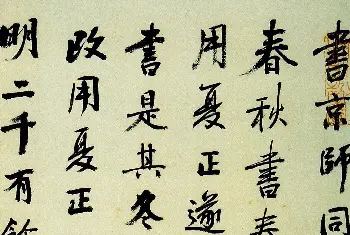 書京師同
春秋書春
用夏正遂
書是其冬
改用夏正
明二千有餘